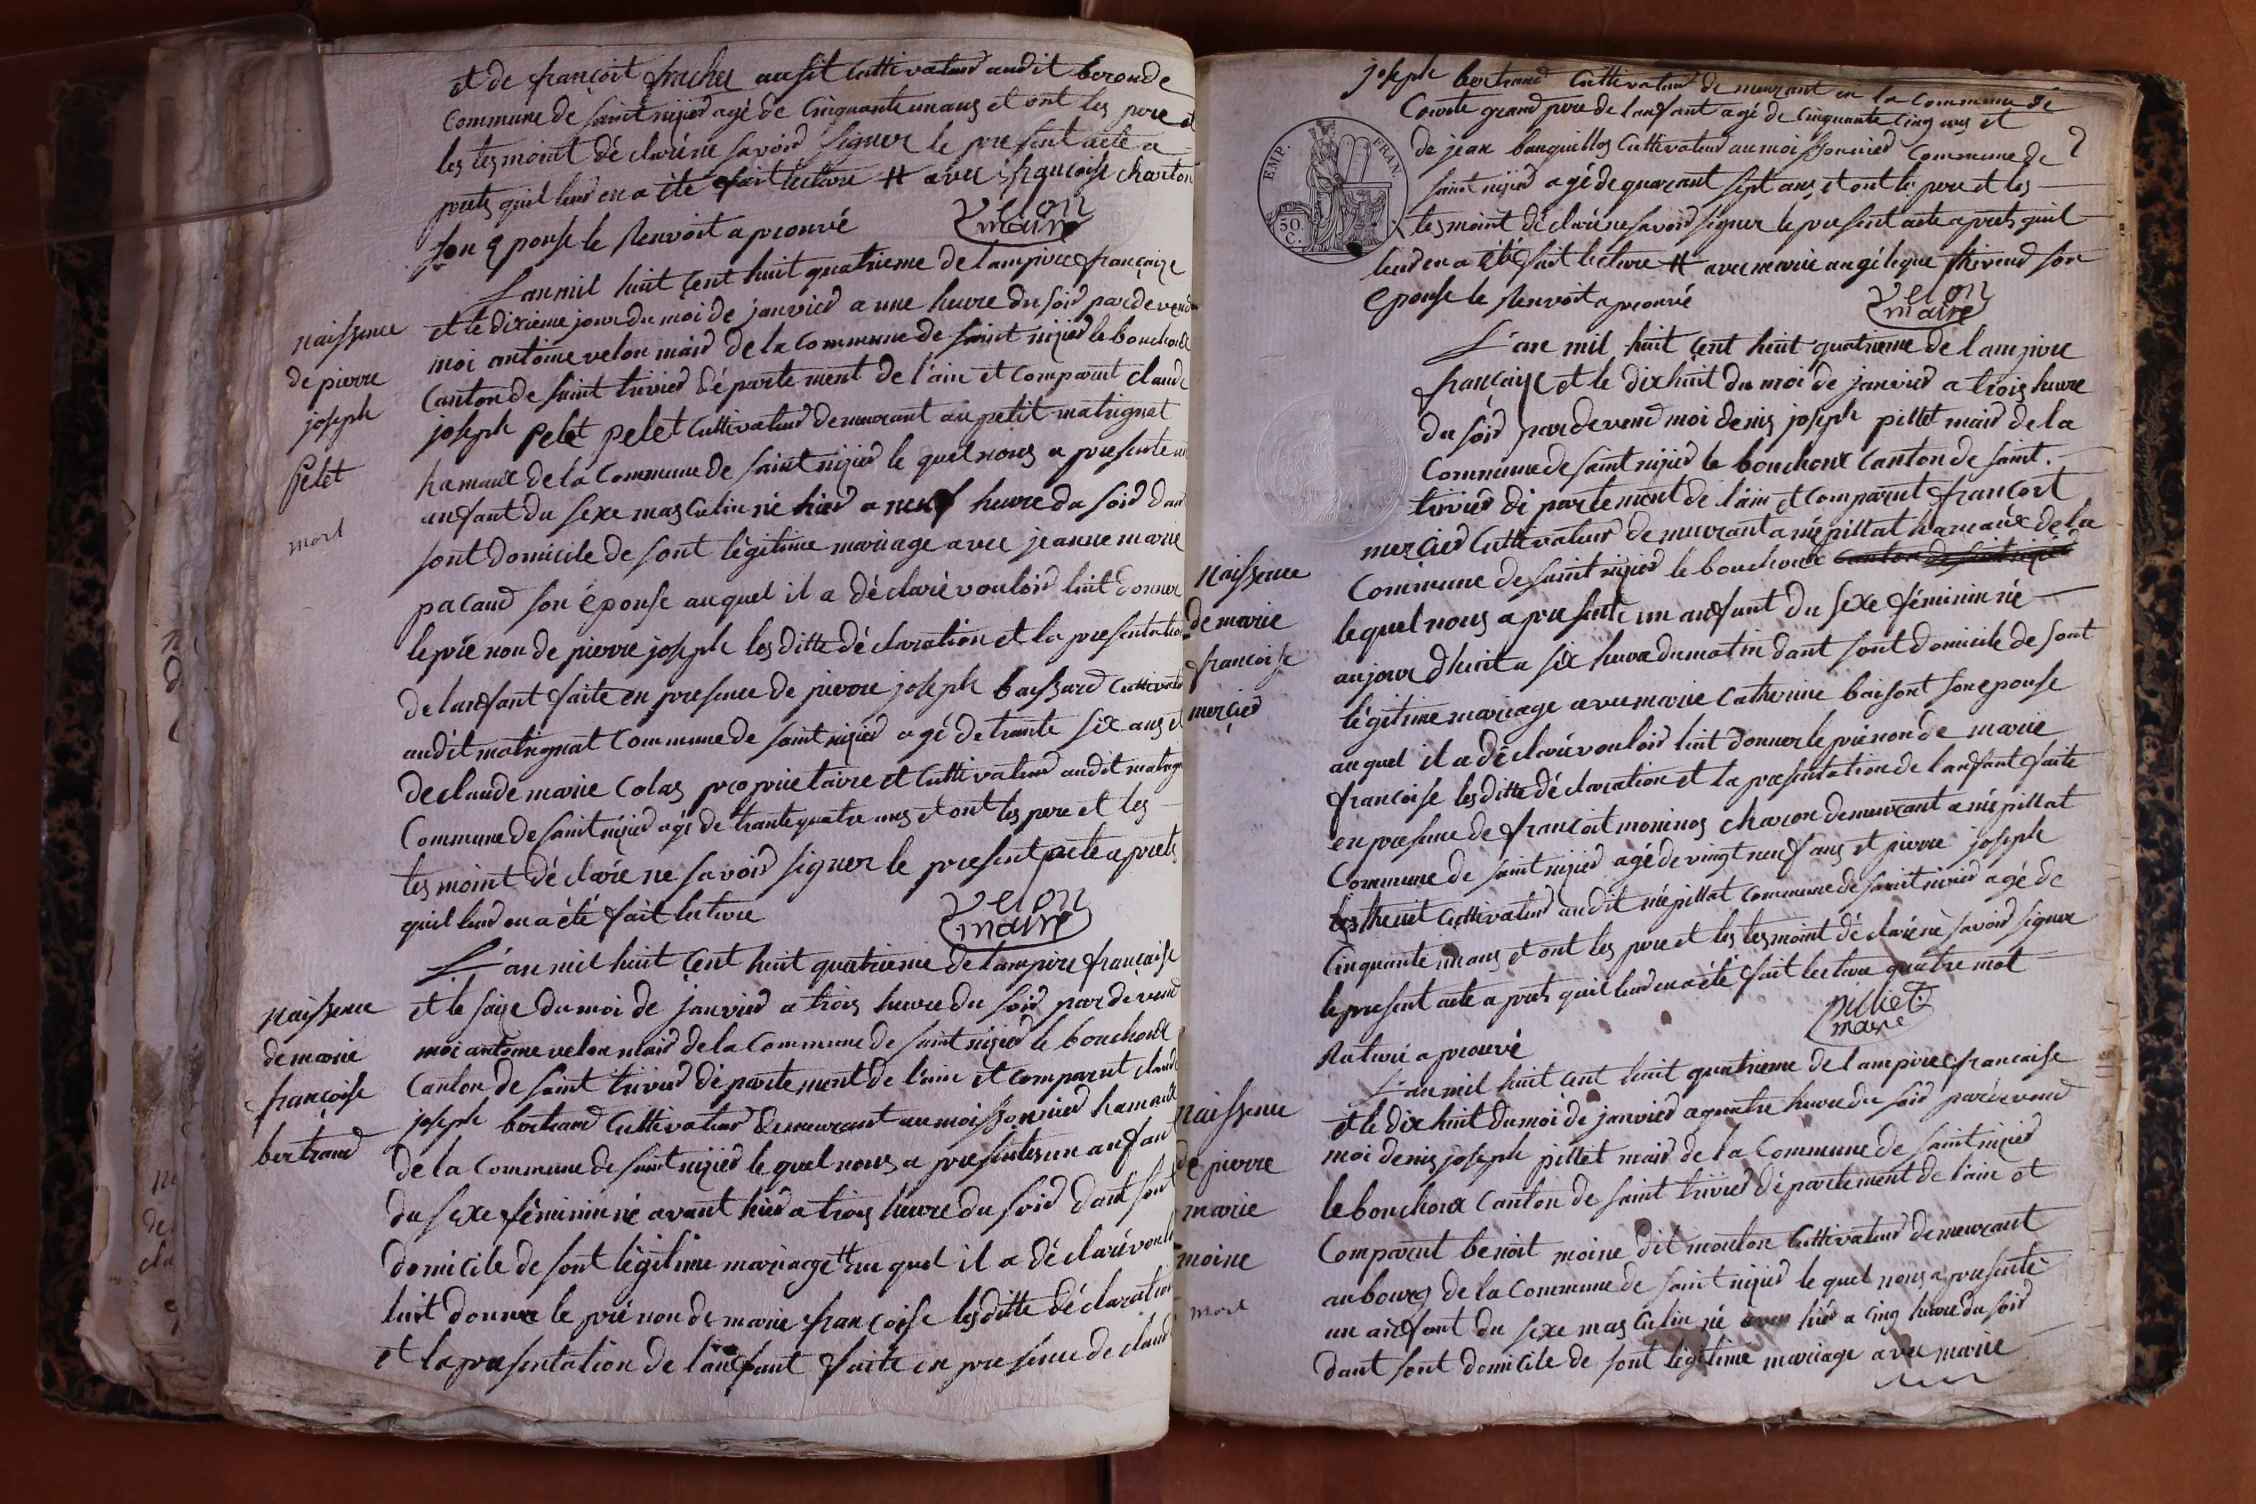 et de françoit frachet ausit Cultivateur audit beronde
Commune de saint nizier agé de Cinquante un ans et ont les pere et
les tesmoint déclaré ne savoir signer le present acte a
prets quil leur en a été fait lecture # avec françoise charton
son eponse le Renvoit aprouvé
velon
maire
naissence
de pierre
joseph
pelet
mort
L'an mil huit çent huit quatrieme de l'ampire française
et le dixieme jour du moi de janvier a une heure du soir pardevend
moi antoine velon mair de la Commune de saint nizier le bouchoux
Canton de saint trivier département de l'ain et comparut claude
joseph pelet pelet Cultivateur demeurant au petit matignat
hamaux de la Commune de saint nizier le quel nous a presenté un
anfant du sexe masculin né hier a neuf heure du soir dant
sont domicile de sont légitime mariage avec jeanne marie
pacaud son éponse auquel il a déclaré vouloir luit donner
le prénon de pierre joseph les ditte déclaration et la presentation
de lanfant faite en presence de pierre joseph baissard Cultivateur
audit matignat Commune de saint nizier agé de trante six ans et
de claude marie Colas proprietaire et Cultivateur audit matign
Commune de saint nizier agé de trante quatre ans et ont les pere et les
tesmoint déclaré ne savoir signer le present acte aprets
quil leur en a été fait lecture
velon
maire
naissence
de marie
françoise
bertrand
L'an mil huit çent huit quatrieme de lampire française
et le saize du moi de janvier a trois heure du soir pardevend
moi antoine velon mair de la Commune de saint nizier le bouchoux
Canton de saint trivier département de l'ain et comparut claude
joseph bertrand Cultivateur demeurant au moissonnier hamaux
de la Commune de saint nizier le quel nous a presenter un anfan
du sexe féminin né avant hier a trois heure du soir dant sont
domicile de sont légitime mariage # au quel il a déclaré voul
luit donner le prénon de marie françoise les ditte déclaration
et la presentation de l'anfant faite en presence de claud
joseph bertrand Cultivateur demeurant en la Commune de
Courte grand pere de lanfant agé de Cinquante Cinq ans et
de jean banquillos Cultivateur au moissonnier Commune de
saint nizier agé de quarant sept ans et ont le pere et les
tesmoint déclaré ne savoir signer le present acte aprets quil
leur en a été fait lecture # avec marie angélique thivend son
eponse le Renvoit aprouvé
velon
maire
EMP. FRAN.
50. C.
naissence
de marie
françoise
merçier
L'an mil huit çent huit quatrieme de l ampire
française et le dix huit du moi de janvier a trois heure
du soir pardevend moi denis joseph pillet mair de la
Commune de saint nizier le bouchoux Canton de saint
trivier département de l'ain et comparut françoit
merçier Cultivateur demeurant a népillat hamaux de la
Commune de saint nizier le bouchoux
lequel nous a presenté un anfant du sexe féminin né
aujour dhuit a six heure du matin dant sont domicile de sont
légitime mariage avec marie Catherine baisont son eponse
auquel il a déclaré vouloir luit donner le prénon de marie
françoise les ditte déclaration et la presentation de lanfant faite
en presence de françoit moninos charon demeurant a népillat
Commune de saint nizier agé de vingt neuf ans et pierre joseph
Cultivateur audit népillat Commune de saint nizier agé de
Cinquante un ans et ont les pere et les tesmoint déclaré ne savoir signer
le present acte aprets quil leur en a été fait lecture quatre mot
Raturé aprouvé
pilliet
maire
naissence
de pierre
marie
moine
mort
L'an mil huit çent huit quatrieme de l ampire française
et le dix huit du moi de janvier a quatre heure du soir pardevend
moi denis joseph pillet mair de la Commune de saint nizier
le bouchoux Canton de saint trivier département de l'ain et
Comparut benoit moine dit moulon Cultivateur demeurant
au bourg de la Commune de saint nizier le quel nous a presenté
un anfant du sexe masculin né hier a cinq heure du soir
dant sont domicile de sont légitime mariage avec marie